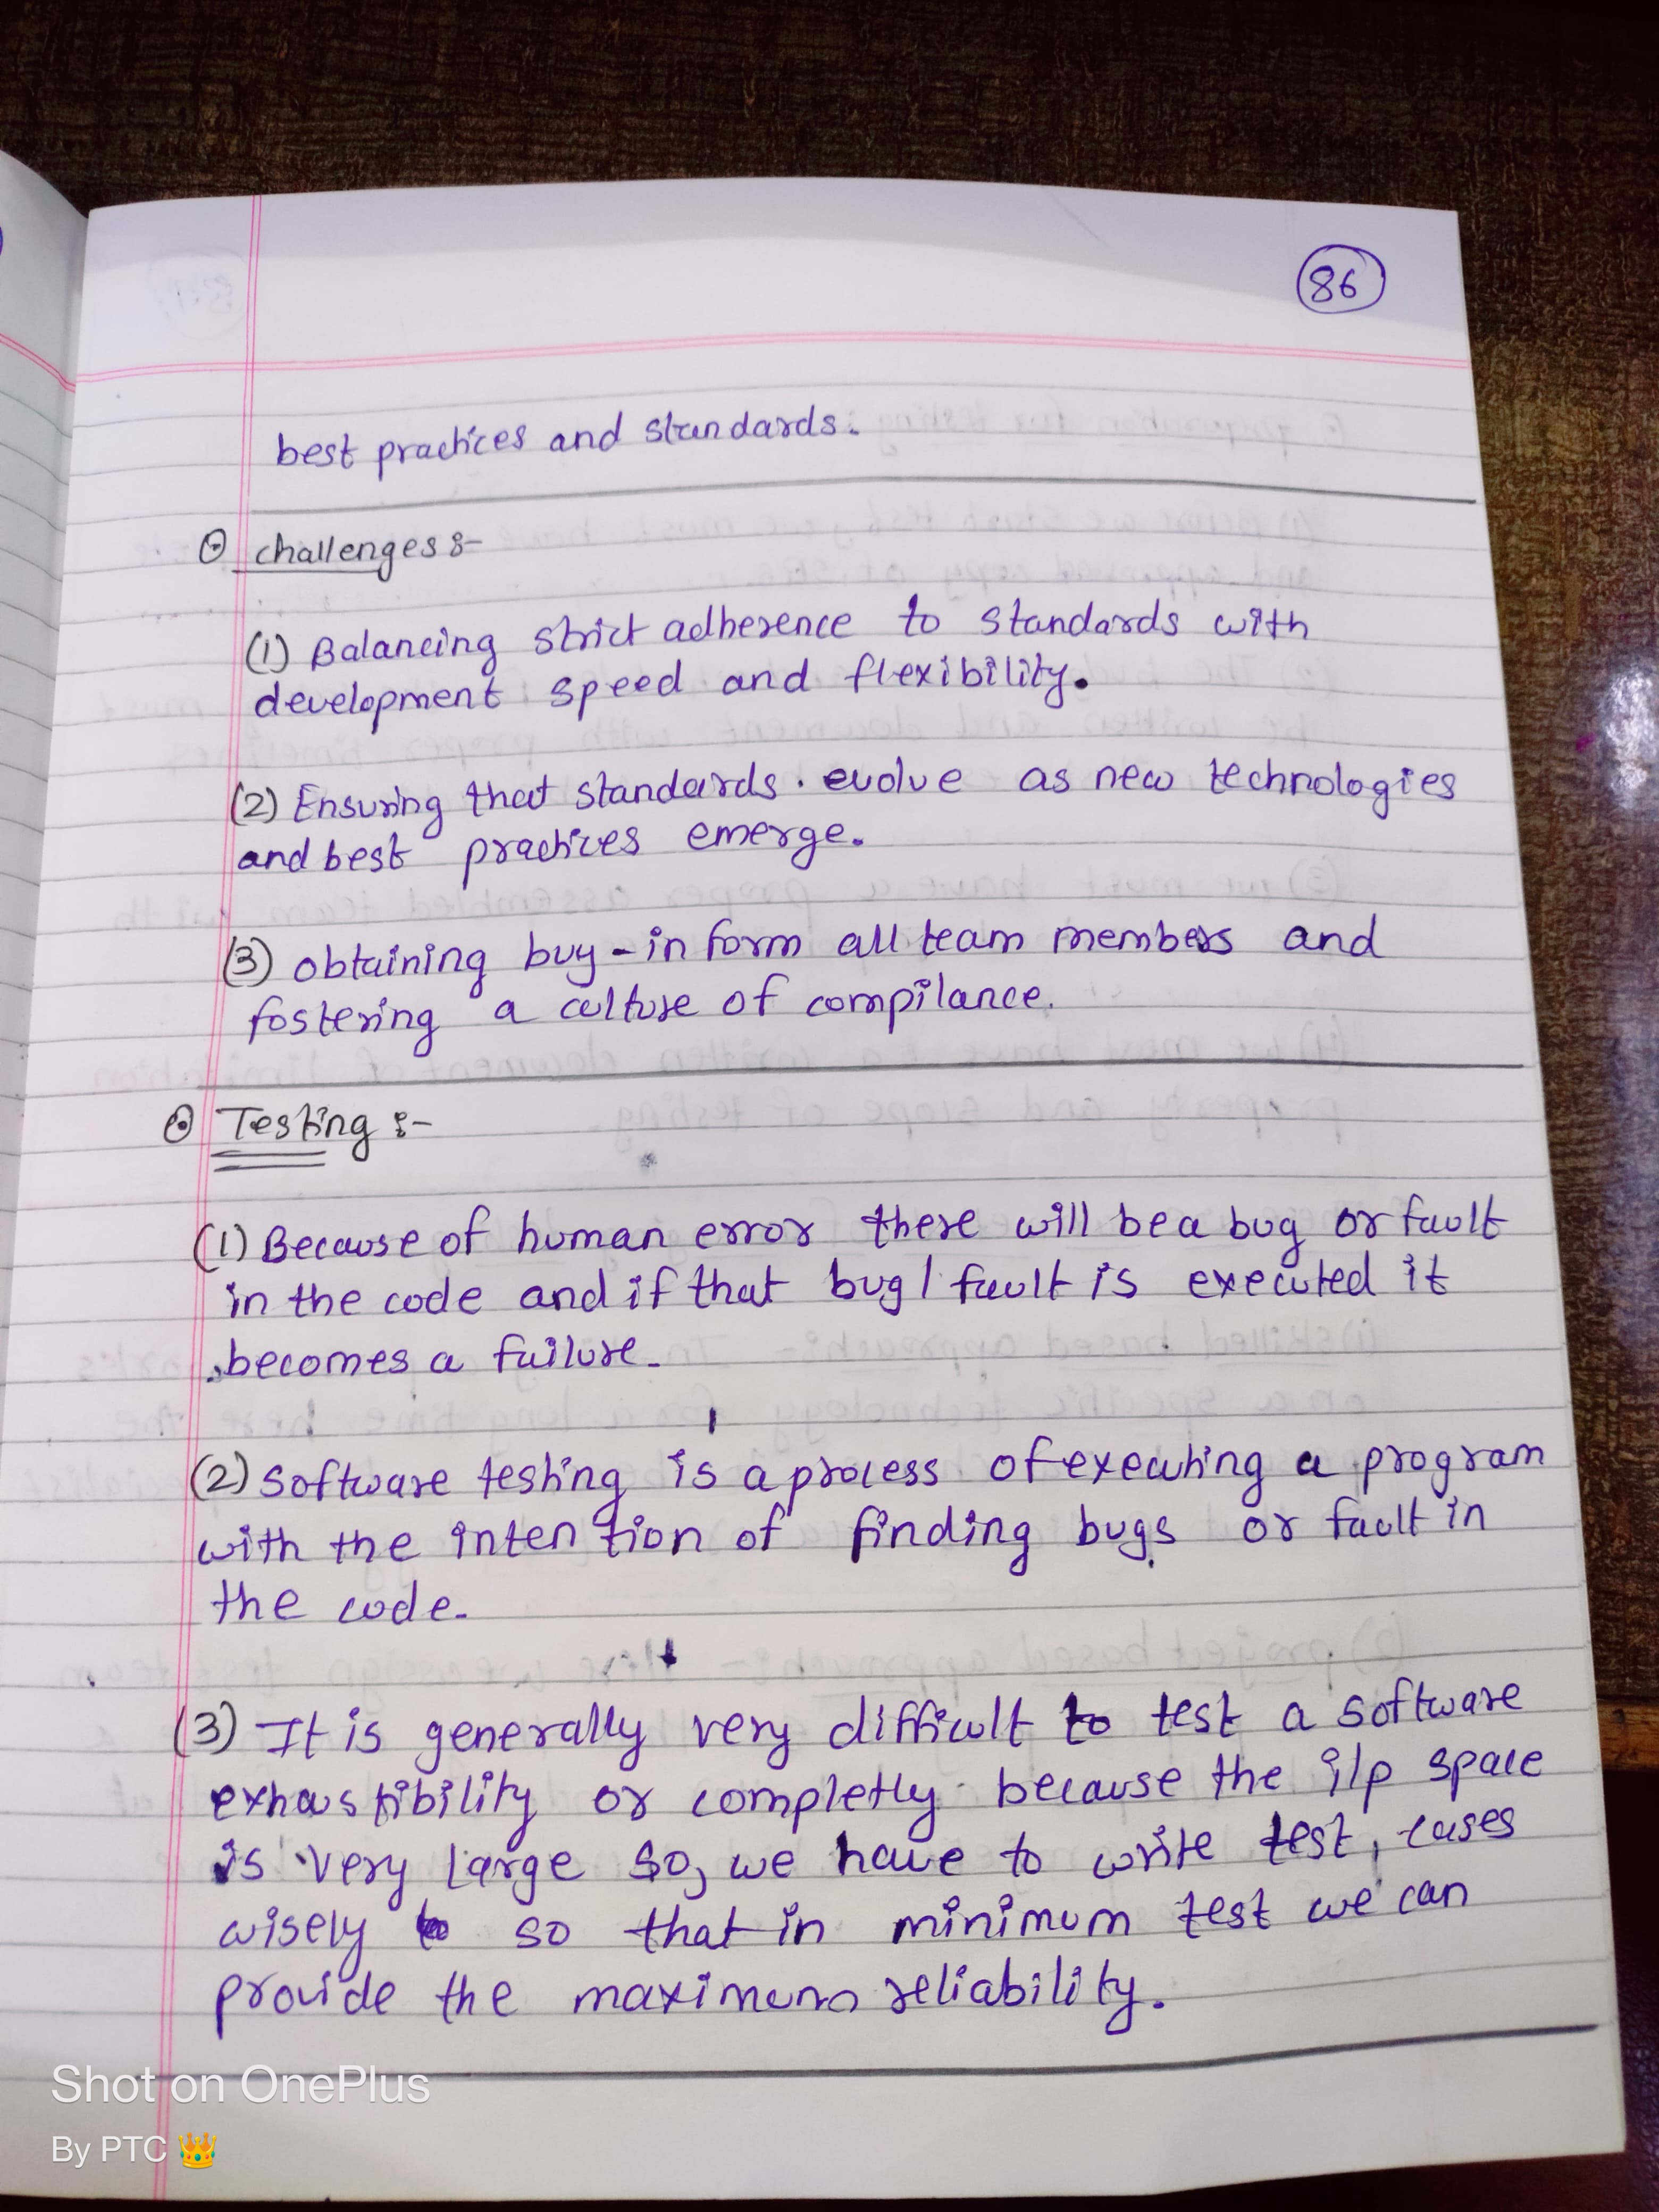 86
best practices and standards.
challenges :-
(1) Balancing strict adherence to standards with
development speed and flexibility.
(2) Ensuring that standards. evolve as new technologies
and best practices emerge.
(3) obtaining buy-in form all team members and
fostering a culture of compilance.
Testing :-
(1) Because of human error there will be a bug or fault
in the code and if that bug/fault is executed it
becomes a failure.
(2) Software testing is a process of executing a program
with the intention of finding bugs or fault in
the code.
(3) It is generally very difficult to test a software
exhaustibility or completly because the i/p space
is very large so, we have to write test, cases
wisely so that in minimum test we can
provide the maximum reliability.
Shot on OnePlus
By PTC 👑